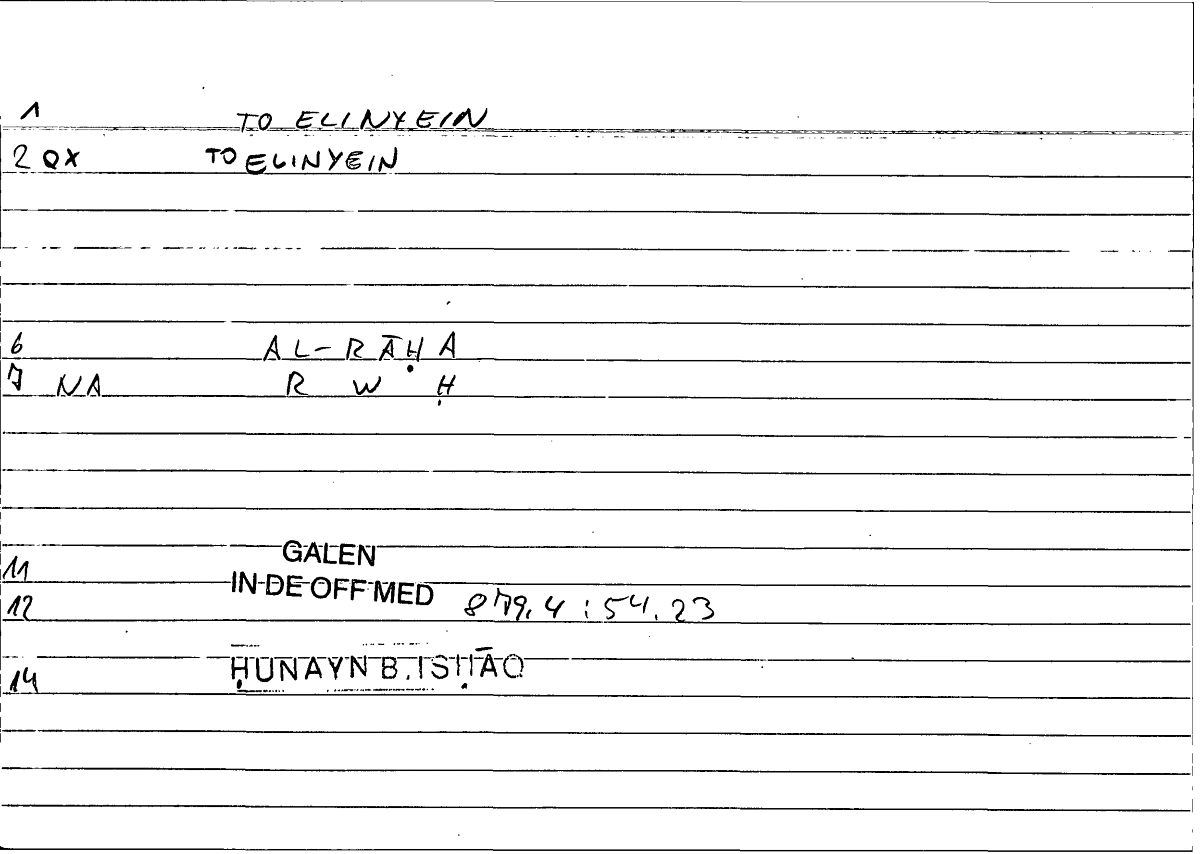 1 TO ELINYEIN
2 QX TO ELINYEIN
6 AL-RĀḤA
7 NA R W Ḥ
GALEN
11
IN DE OFF MED
12 879,4 : 54.23
14 ḤUNAYN B. ISḤĀQ